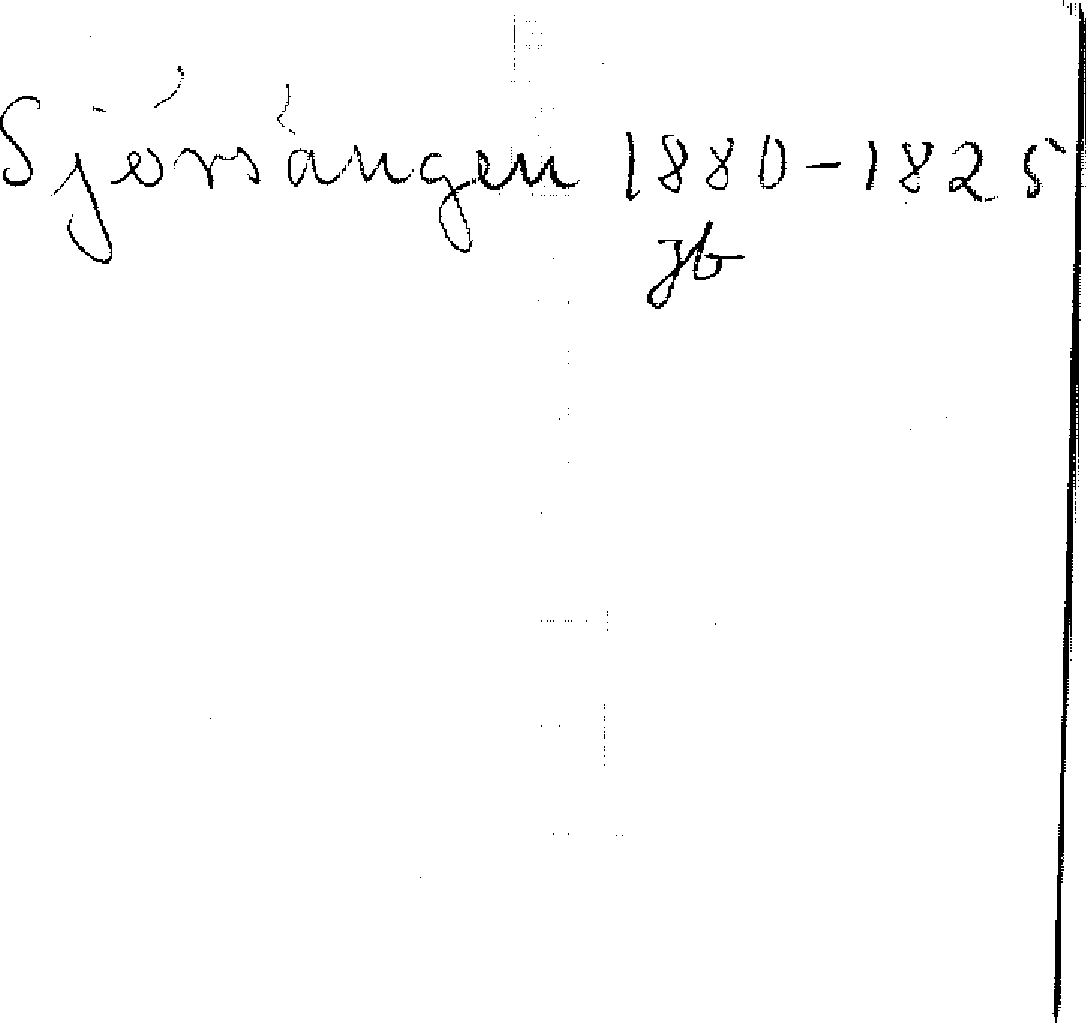 Sjörsängen 1880-1825
jb